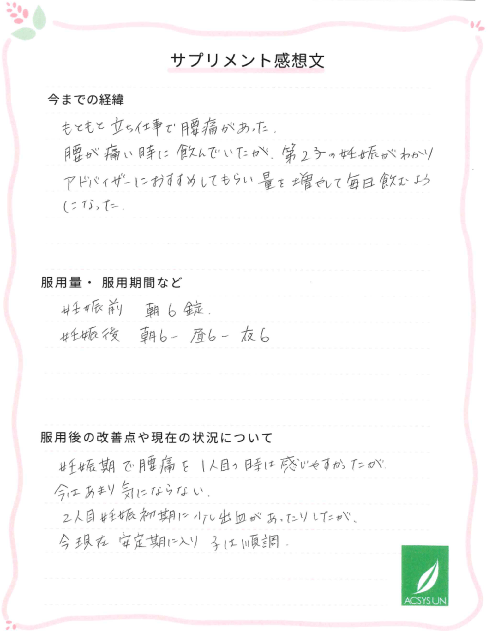 サプリメント感想文
今までの経緯
もともと立ち仕事で腰痛があった.
腰が痛い時に飲んでいたが、第2子の妊娠がわかり
アドバイザーにおすすめしてもらい量を増やして毎日飲むよう
になった.
服用量・服用期間など
妊娠前 朝6錠.
妊娠後 朝6- 昼6- 夜6
服用後の改善点や現在の状況について
妊娠期で腰痛を1人目の時は感じやすかったが
今はあまり気にならない.
2人目妊娠初期に少し出血があったりしたが、
今現在 安定期に入り 子は順調.
ACSYSUN